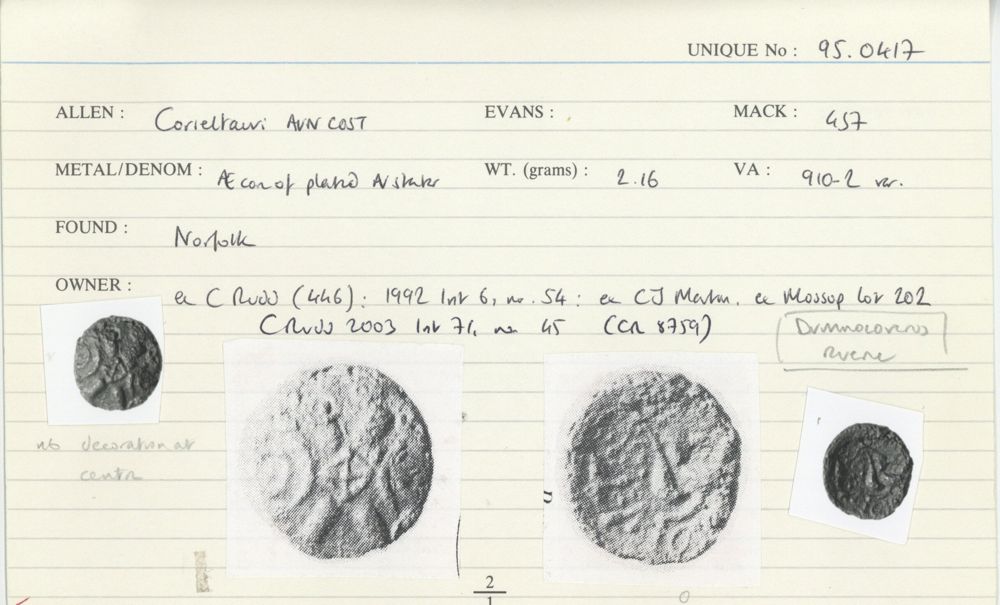 UNIQUE No : 95.0417
ALLEN : Corieltauvi AVN COST EVANS : MACK : 457
METAL/DENOM : Æ core of plated AV stater WT. (grams) : 2.16 VA : 910-2 var.
FOUND : Norfolk
OWNER : ex C Rudd (446) : 1992 list 6, no. 54 : ex CJ Martin, ex Mossop lot 202
C Rudd 2003 list 71, no 45 (CR 8759)
Dumnocoveros
nb decoration at
centre
D
2
1
0